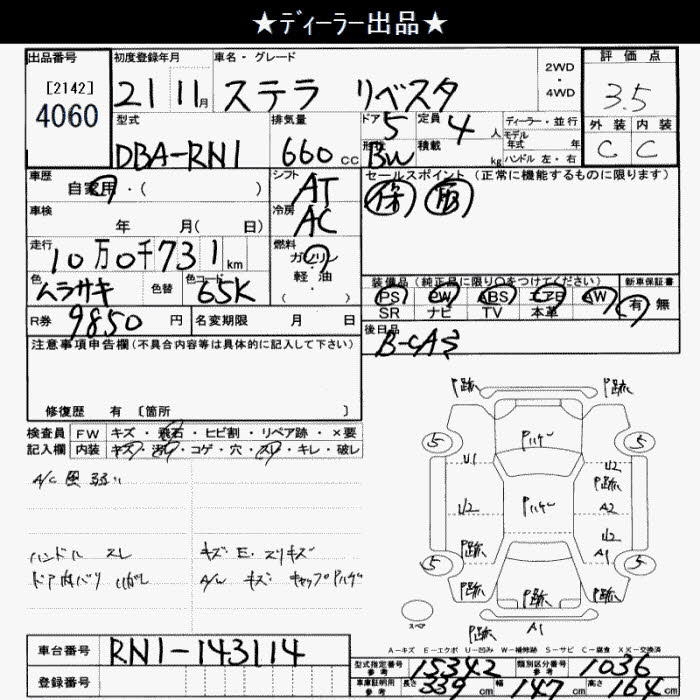 ★ディーラー出品★
出品番号 初度登録年月 車名・グレード 2WD・4WD 評価点
[2142] 4060 21 11月 ステラ リベスタ 3.5
型式 排気量 ドア 5 定員 4人 ディーラー・並行 外装 内装
DBA-RN1 660cc 形状 BW 積載 kg モデル年式 年 ハンドル 左・右 C C
車歴 自家用・( ) シフト AT セールスポイント (正常に機能するものに限ります)
車検 年 月( 日) 冷房 AC 保
走行 10万0千731km 燃料 ガソリン・軽・油 ( )
色 ムラサキ 色替 色コード 65K 装備品(純正品に限り○をつけてください) 新車保証書
PS PW ABS エアB AW 有 無
SR ナビ TV 本革
R券 9850円 名変期限 月 日 後日品
注意事項申告欄(不具合内容等は具体的に記入して下さい)
修復歴 有 [箇所 ]
検査員 FW キズ・飛石・ヒビ割・リペア跡・×要
記入欄 内装 キズ・汚レ・コゲ・穴・スレ・キレ・破レ
A/C 風 弱い
ハンドル スレ キズ E. スリキズ
A/W キズ
P跡 P跡
5 5
U1 U2
P跡
U2 A2
U2
P跡 A1
5 5
P跡 P跡 P跡
スペア A1
A-キズ E-エクボ U-凹み W-補修跡 S-サビ C-腐食 XX-交換済
車台番号 RN1-143114
登録番号
型式指定番号 参考 15342 類別区分番号 参考 1036
車庫証明用 参考 長さ 339cm 幅 147cm 高さ 164cm